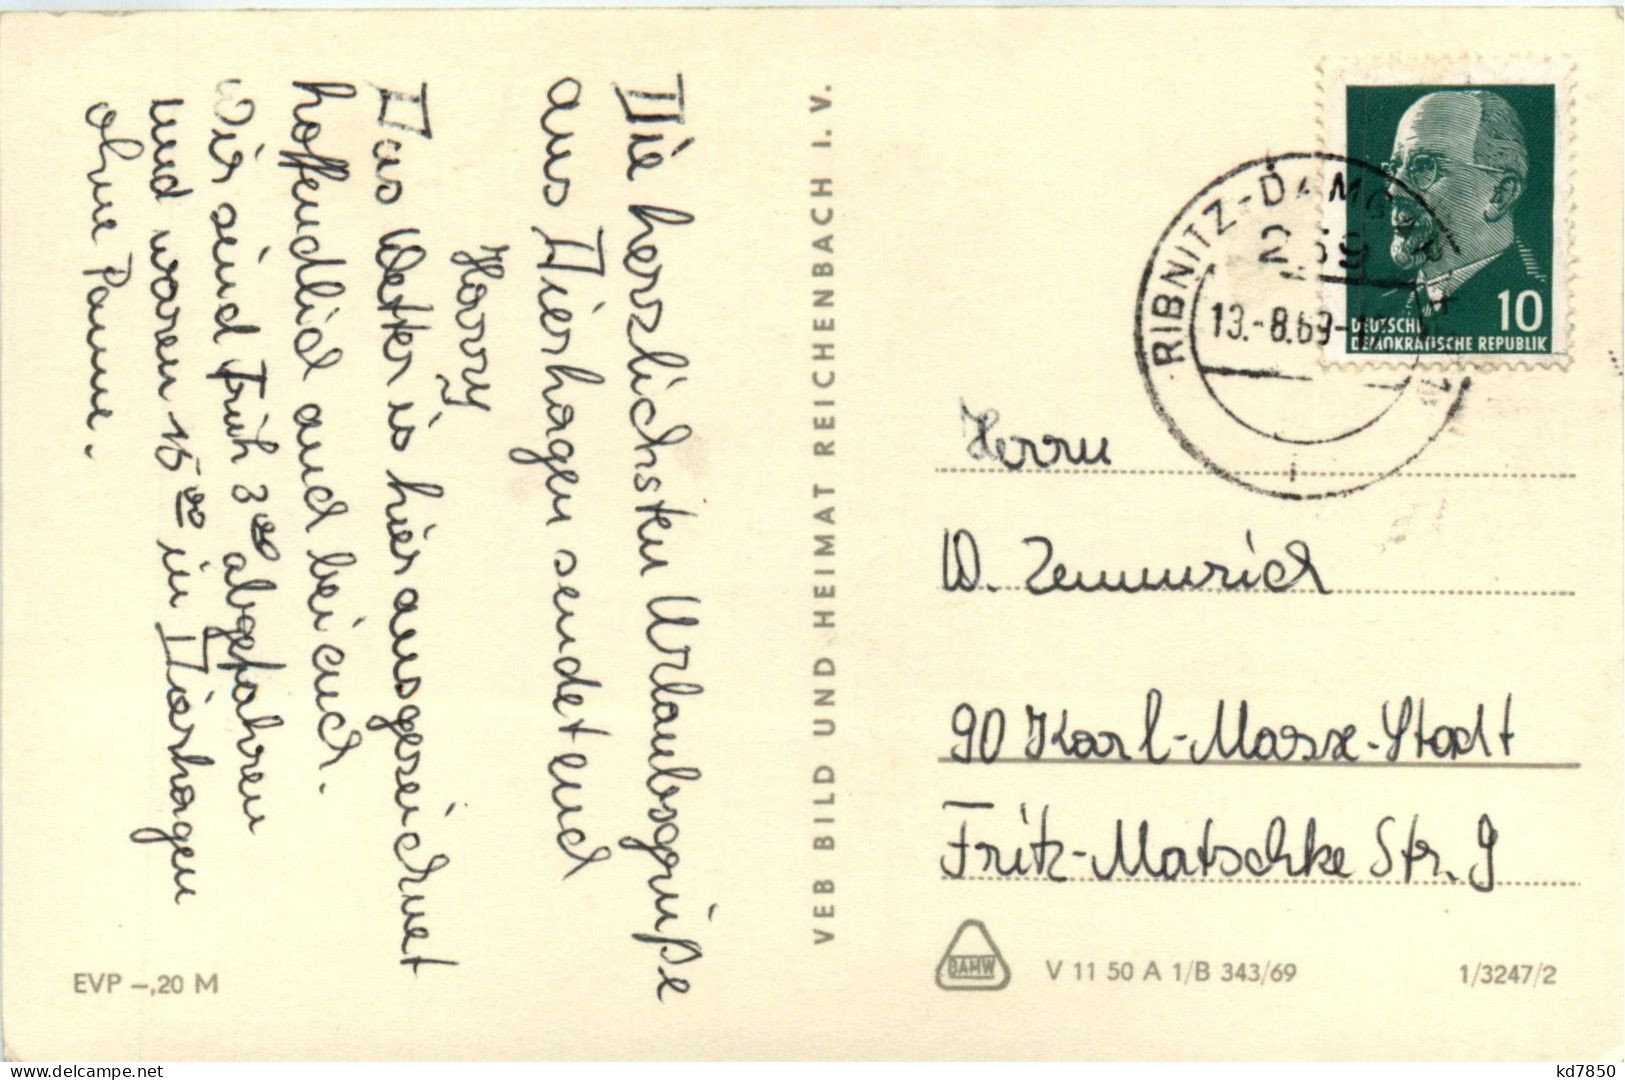 Die herzlichsten Urlaubsgrüße
aus Dierhagen sendet euch
Harry
Das Wetter is hier ausgezeichnet
hoffendlich auch bei euch.
Wir sind Früh 3⁰⁰ abgefahren
und waren 15⁰⁰ in Dierhagen
ohne Panne.
EVP –,20 M
VEB BILD UND HEIMAT REICHENBACH I. V.
RIBNITZ-DAMGARTEN
259
13.-8.69
10
DEUTSCHE
DEMOKRATISCHE REPUBLIK
Herrn
W. Zemmrich
90 Karl-Marx-Stadt
Fritz-Matschke Str. 9
DAMW
V 11 50 A 1/B 343/69
1/3247/2
delcampe.net
kd7850